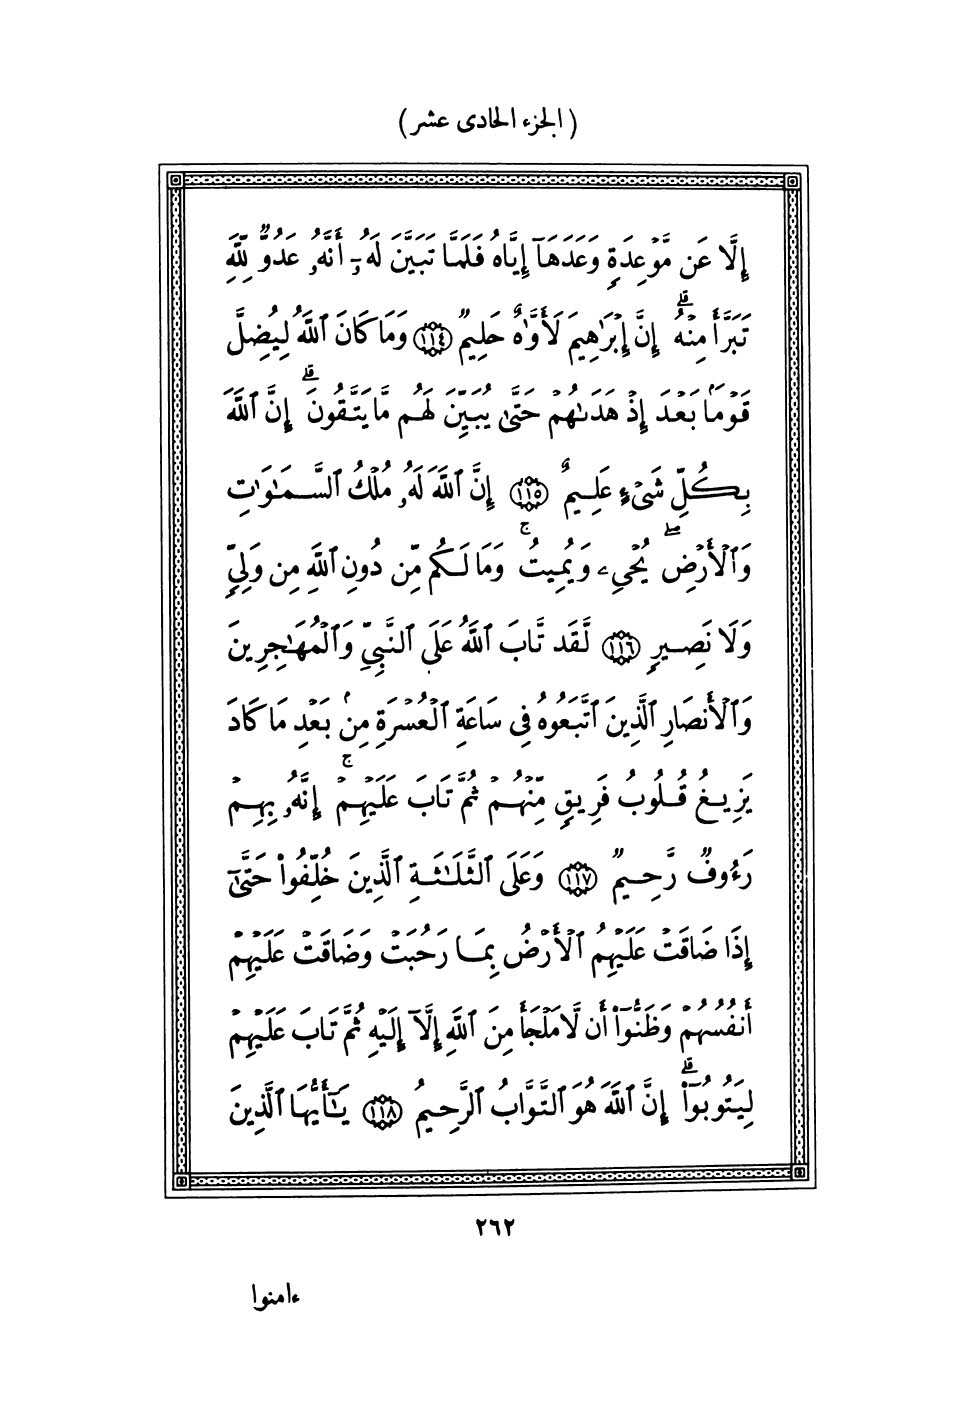 (الجزء الحادى عشر)
إِلَّا عَن مَّوْعِدَةٍ وَعَدَهَآ إِيَّاهُ فَلَمَّا تَبَيَّنَ لَهُۥٓ أَنَّهُۥ عَدُوٌّ لِّلَّهِ
تَبَرَّأَ مِنْهُ ۚ إِنَّ إِبْرَٰهِيمَ لَأَوَّٰهٌ حَلِيمٌ ١١٤ وَمَا كَانَ ٱللَّهُ لِيُضِلَّ
قَوْمًۢا بَعْدَ إِذْ هَدَىٰهُمْ حَتَّىٰ يُبَيِّنَ لَهُم مَّا يَتَّقُونَ ۗ إِنَّ ٱللَّهَ
بِكُلِّ شَىْءٍ عَلِيمٌ ١١٥ إِنَّ ٱللَّهَ لَهُۥ مُلْكُ ٱلسَّمَٰوَٰتِ
وَٱلْأَرْضِ ۖ يُحْىِۦ وَيُمِيتُ ۚ وَمَا لَكُم مِّن دُونِ ٱللَّهِ مِن وَلِىٍّ
وَلَا نَصِيرٍ ١١٦ لَّقَد تَّابَ ٱللَّهُ عَلَى ٱلنَّبِىِّ وَٱلْمُهَٰجِرِينَ
وَٱلْأَنصَارِ ٱلَّذِينَ ٱتَّبَعُوهُ فِى سَاعَةِ ٱلْعُسْرَةِ مِنۢ بَعْدِ مَا كَادَ
يَزِيغُ قُلُوبُ فَرِيقٍ مِّنْهُمْ ثُمَّ تَابَ عَلَيْهِمْ ۚ إِنَّهُۥ بِهِمْ
رَءُوفٌ رَّحِيمٌ ١١٧ وَعَلَى ٱلثَّلَٰثَةِ ٱلَّذِينَ خُلِّفُوا۟ حَتَّىٰٓ
إِذَا ضَاقَتْ عَلَيْهِمُ ٱلْأَرْضُ بِمَا رَحُبَتْ وَضَاقَتْ عَلَيْهِمْ
أَنفُسُهُمْ وَظَنُّوٓا۟ أَن لَّا مَلْجَأَ مِنَ ٱللَّهِ إِلَّآ إِلَيْهِ ثُمَّ تَابَ عَلَيْهِمْ
لِيَتُوبُوٓا۟ ۚ إِنَّ ٱللَّهَ هُوَ ٱلتَّوَّابُ ٱلرَّحِيمُ ١١٨ يَٰٓأَيُّهَا ٱلَّذِينَ
٢٦٢
ءامنوا